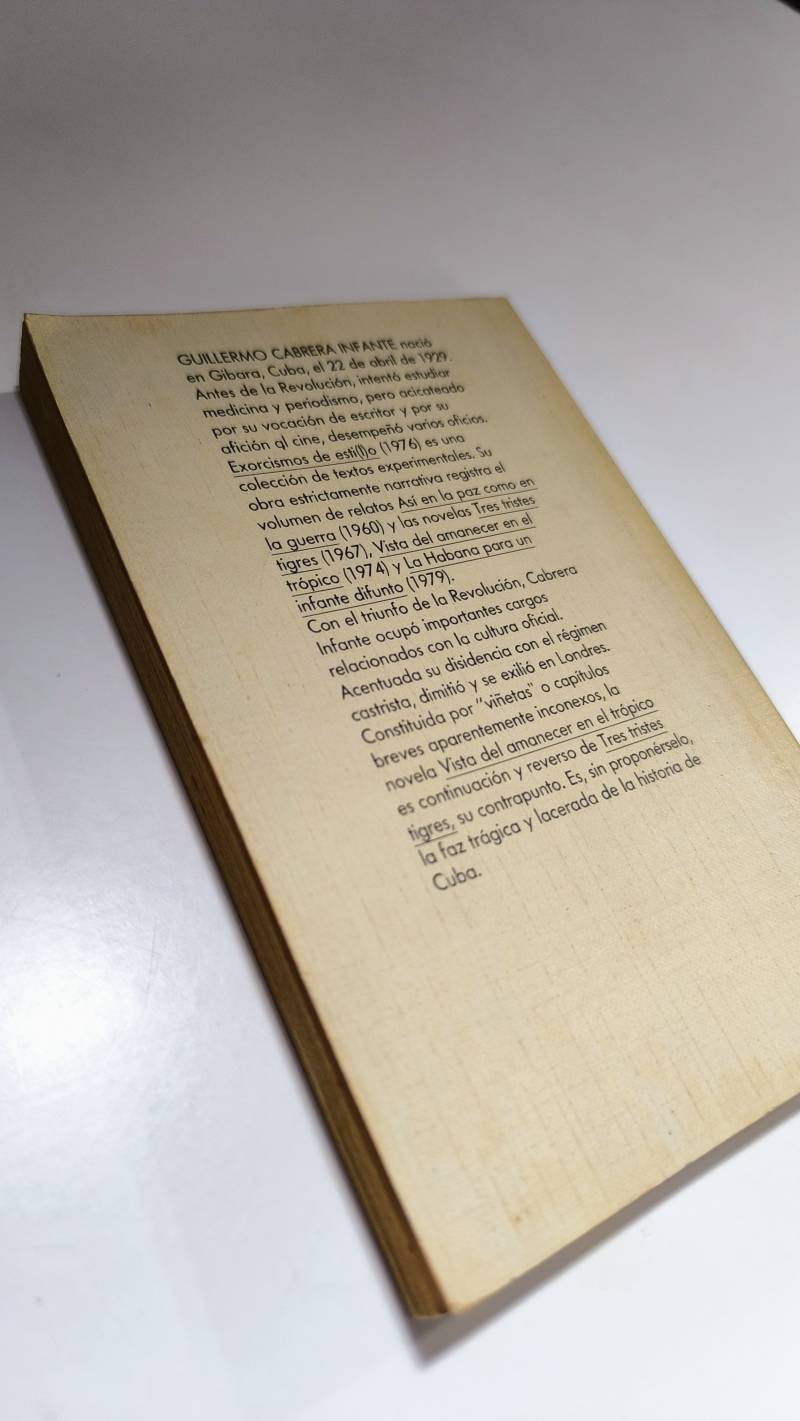 GUILLERMO CABRERA INFANTE nació
en Gibara, Cuba, el 22 de abril de 1929.
Antes de la Revolución, intentó estudiar
medicina y periodismo, pero acicateado
por su vocación de escritor y por su
afición al cine, desempeñó varios oficios.
Exorcismos de esti(l)o (1976) es una
colección de textos experimentales. Su
obra estrictamente narrativa registra el
volumen de relatos Así en la paz como en
la guerra (1960) y las novelas Tres tristes
tigres (1967), Vista del amanecer en el
trópico (1974) y La Habana para un
infante difunto (1979).
Con el triunfo de la Revolución, Cabrera
Infante ocupó importantes cargos
relacionados con la cultura oficial.
Acentuada su disidencia con el régimen
castrista, dimitió y se exilió en Londres.
Constituida por "viñetas" o capítulos
breves aparentemente inconexos, la
novela Vista del amanecer en el trópico
es continuación y reverso de Tres tristes
tigres, su contrapunto. Es, sin proponérselo,
la faz trágica y lacerada de la historia de
Cuba.